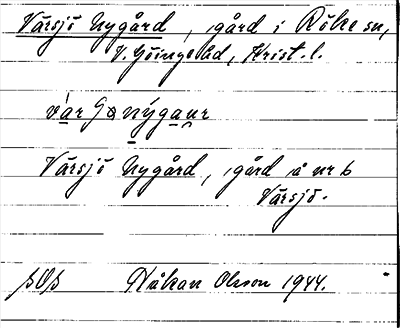 Värsjö Nygård, gård i Röke sn,
V. Göinge hd, Krist. l.
Värsjö Nygård, gård å nr 6
Värsjö.
Håkan Olsson 1944.